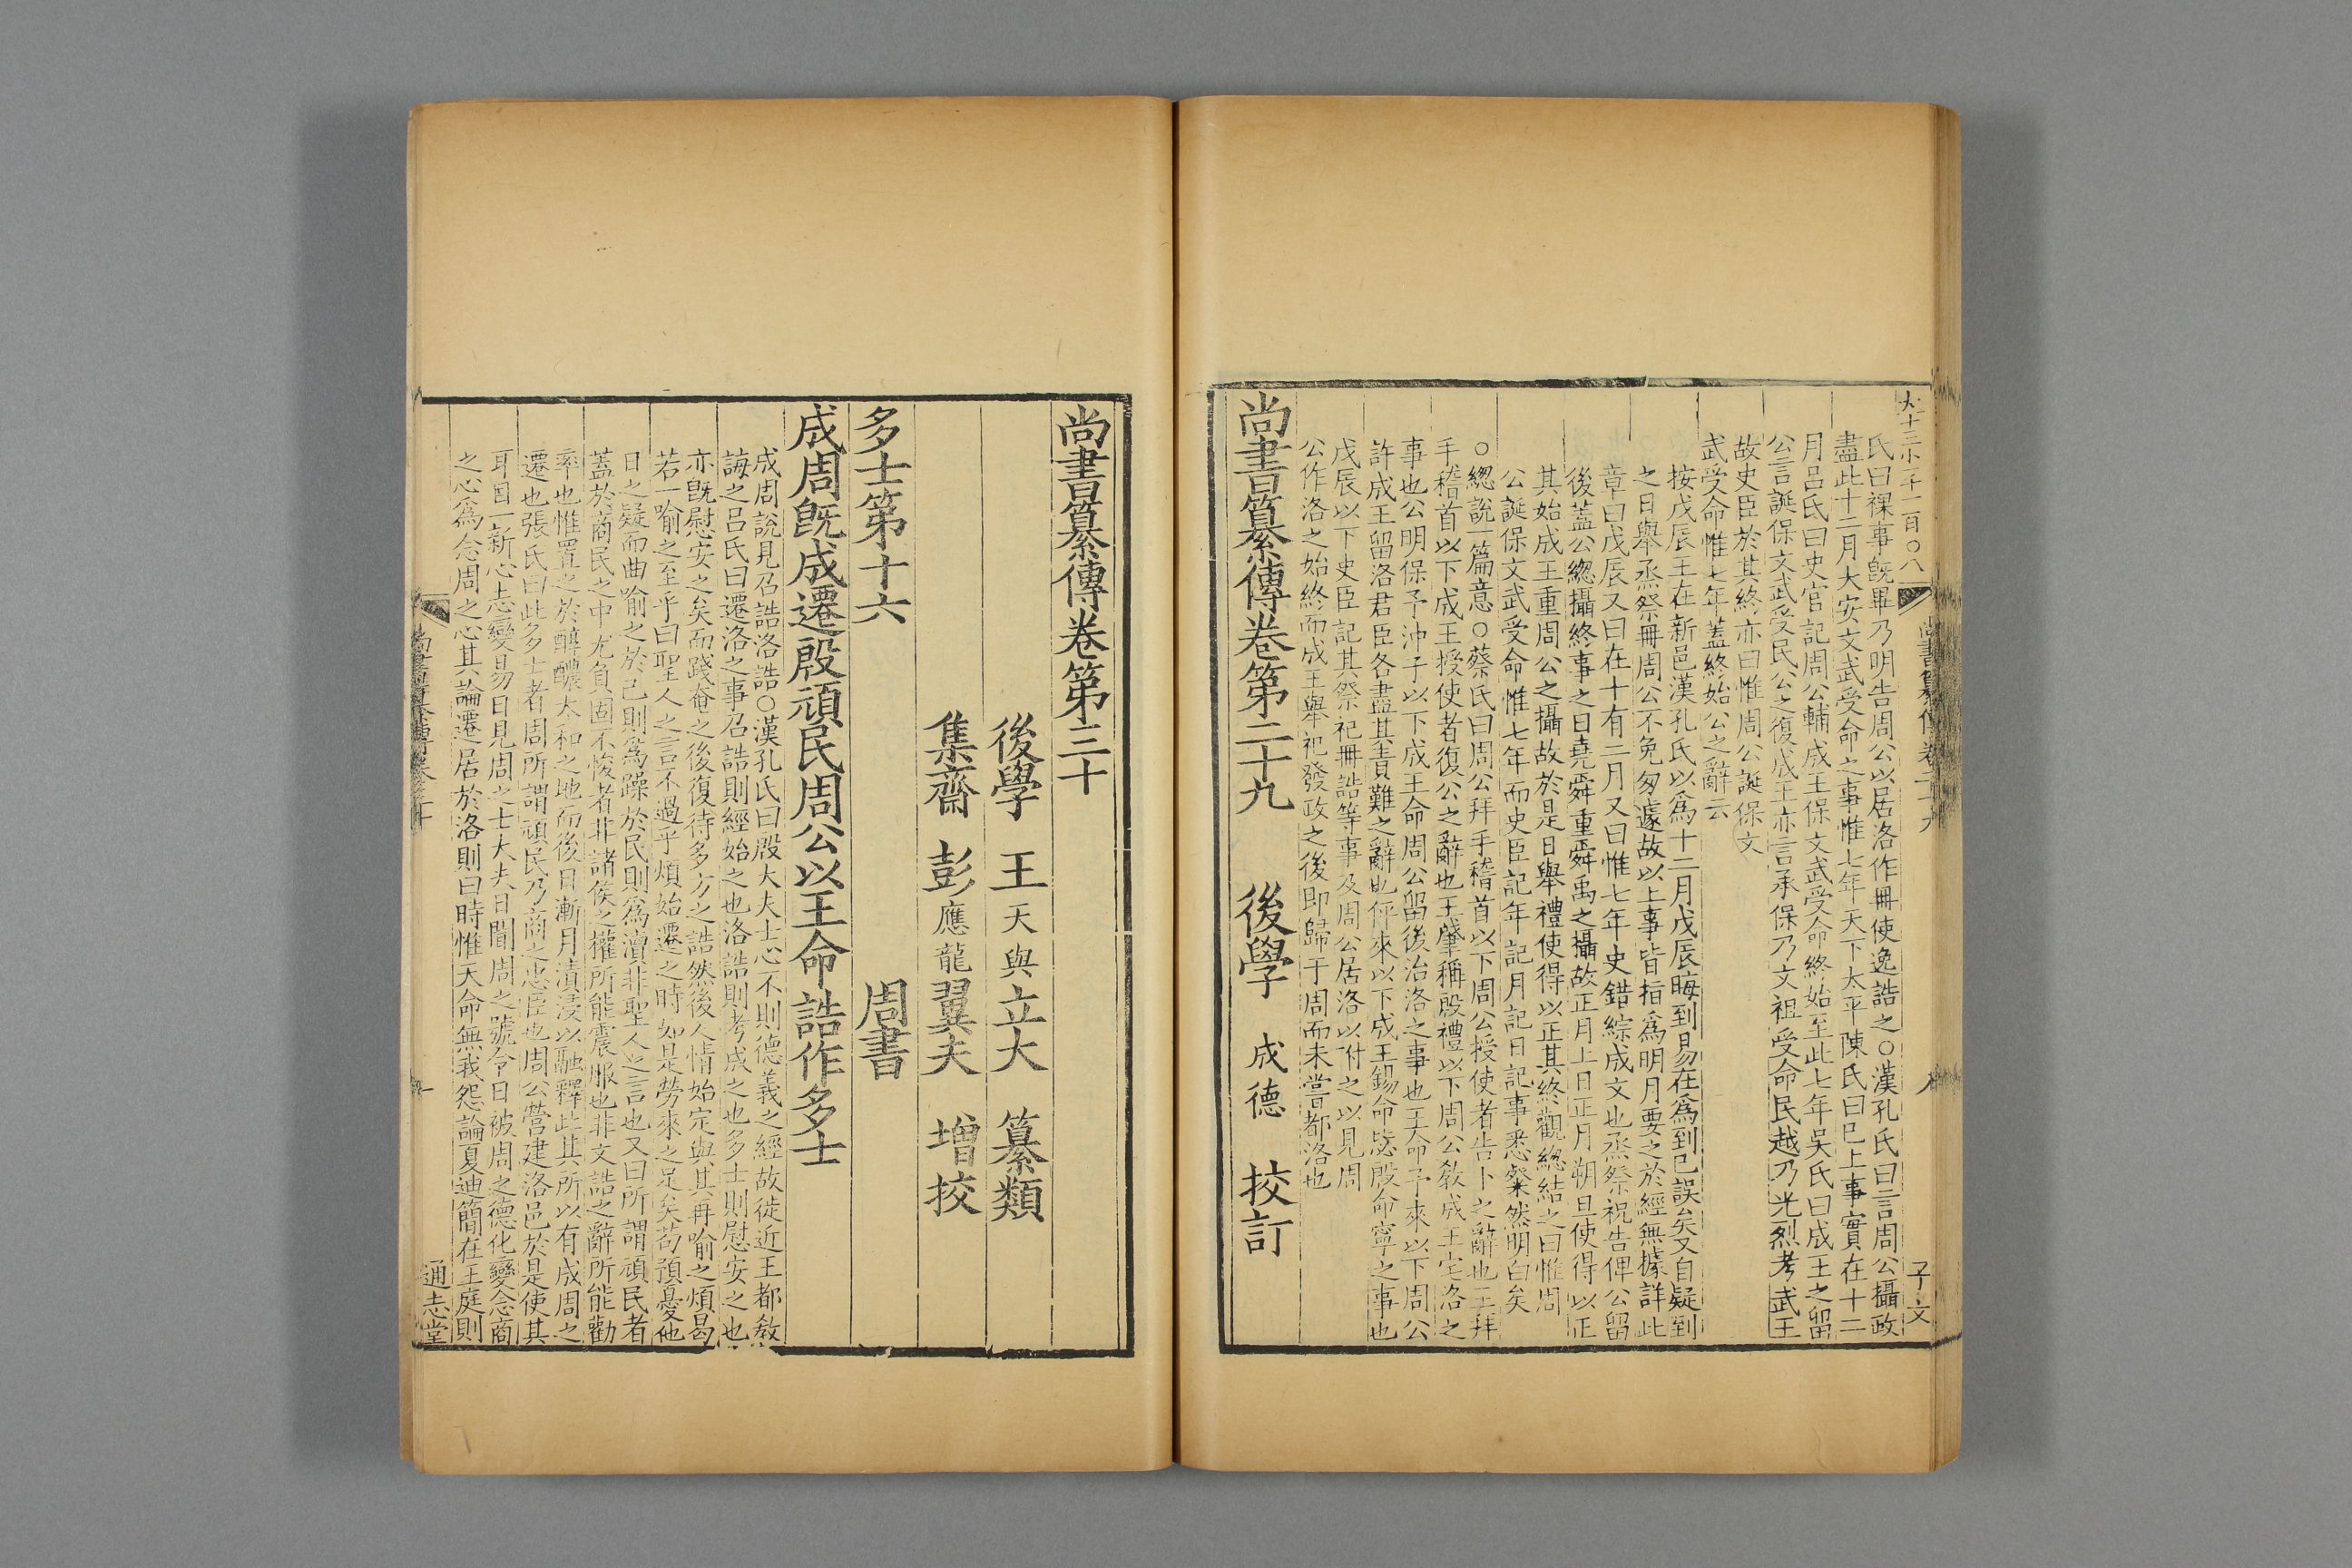 大十三小二千一百〇八
尚書纂傳卷二十九
八
子文
氏曰祼事旣畢乃明告周公以居洛作冊使逸誥之○漢孔氏曰言周公攝政
盡此十二月大安文武受命之事惟七年天下太平陳氏曰已上事實在十二
月呂氏曰史官記周公輔成王保文武受命終始至此七年吳氏曰成王之留
公言誕保文武受民公之復成王亦言承保乃文祖受命民越乃光烈考武王
故史臣於其終亦曰惟周公誕保文
武受命惟七年蓋終始公之辭云
按戊辰王在新邑漢孔氏以爲十二月戊辰晦到易在爲到已誤矣又自疑到
之日舉烝祭冊周公不免匆遽故以上事皆指爲明月要之於經無據詳此
章曰戊辰又曰在十有二月又曰惟七年史錯綜成文也烝祭祝告俾公留
後蓋公緫攝終事之日堯舜重舜禹之攝故正月上日正月朔旦使得以正
其始成王重周公之攝故於是日舉禮使得以正其終觀緫結之曰惟周
公誕保文武受命惟七年而史臣記年記月記日記事悉粲然明白矣
○緫說一篇意○蔡氏曰周公拜手稽首以下周公授使者告卜之辭也王拜
手稽首以下成王授使者復公之辭也王肇稱殷禮以下周公敎成王宅洛之
事也公明保予沖子以下成王命周公留後治洛之事也王命予來以下周公
許成王留洛君臣各盡其責難之辭也伻來以下成王錫命毖殷命寧之事也
戊辰以下史臣記其祭祀冊誥等事及周公居洛以附之以見周
公作洛之始終而成王舉祀發政之後即歸于周而未嘗都洛也
尚書纂傳卷第二十九 後學 成德 挍訂
尚書纂傳卷第三十
後學 王天與立大 纂類
集齋 彭應龍翼夫 增挍
多士第十六 周書
成周旣成遷殷頑民周公以王命誥作多士
成周說見召誥洛誥○漢孔氏曰殷大夫士心不則德義之經故徙近王都敎
誨之呂氏曰遷洛之事召誥則經始之也洛誥則考成之也多士則慰安之也
亦旣慰安之矣而踐奄之後復待多方之誥然後人情始定與其再喻之煩曷
若一喻之至乎曰聖人之言不過乎煩始遷之時如是勞來之足矣苟預憂他
日之疑而曲喻之於己則爲躁於民則爲瀆非聖人之言也又曰所謂頑民者
蓋於商民之中尤負固不悛者非諸侯之權所能震服也非文誥之辭所能勸
率也惟置之於醇醲太和之地而後日漸月漬浸以融釋此其所以有成周之
遷也張氏曰此多士者周所謂頑民乃商之忠臣也周公營建洛邑於是使其
耳目一新心志變易日見周之士大夫日聞周之號令日被周之德化變念商
之心爲念周之心其論遷居於洛則曰時惟天命無我怨論夏迪簡在王庭則
尚書纂傳卷三十
一
通志堂